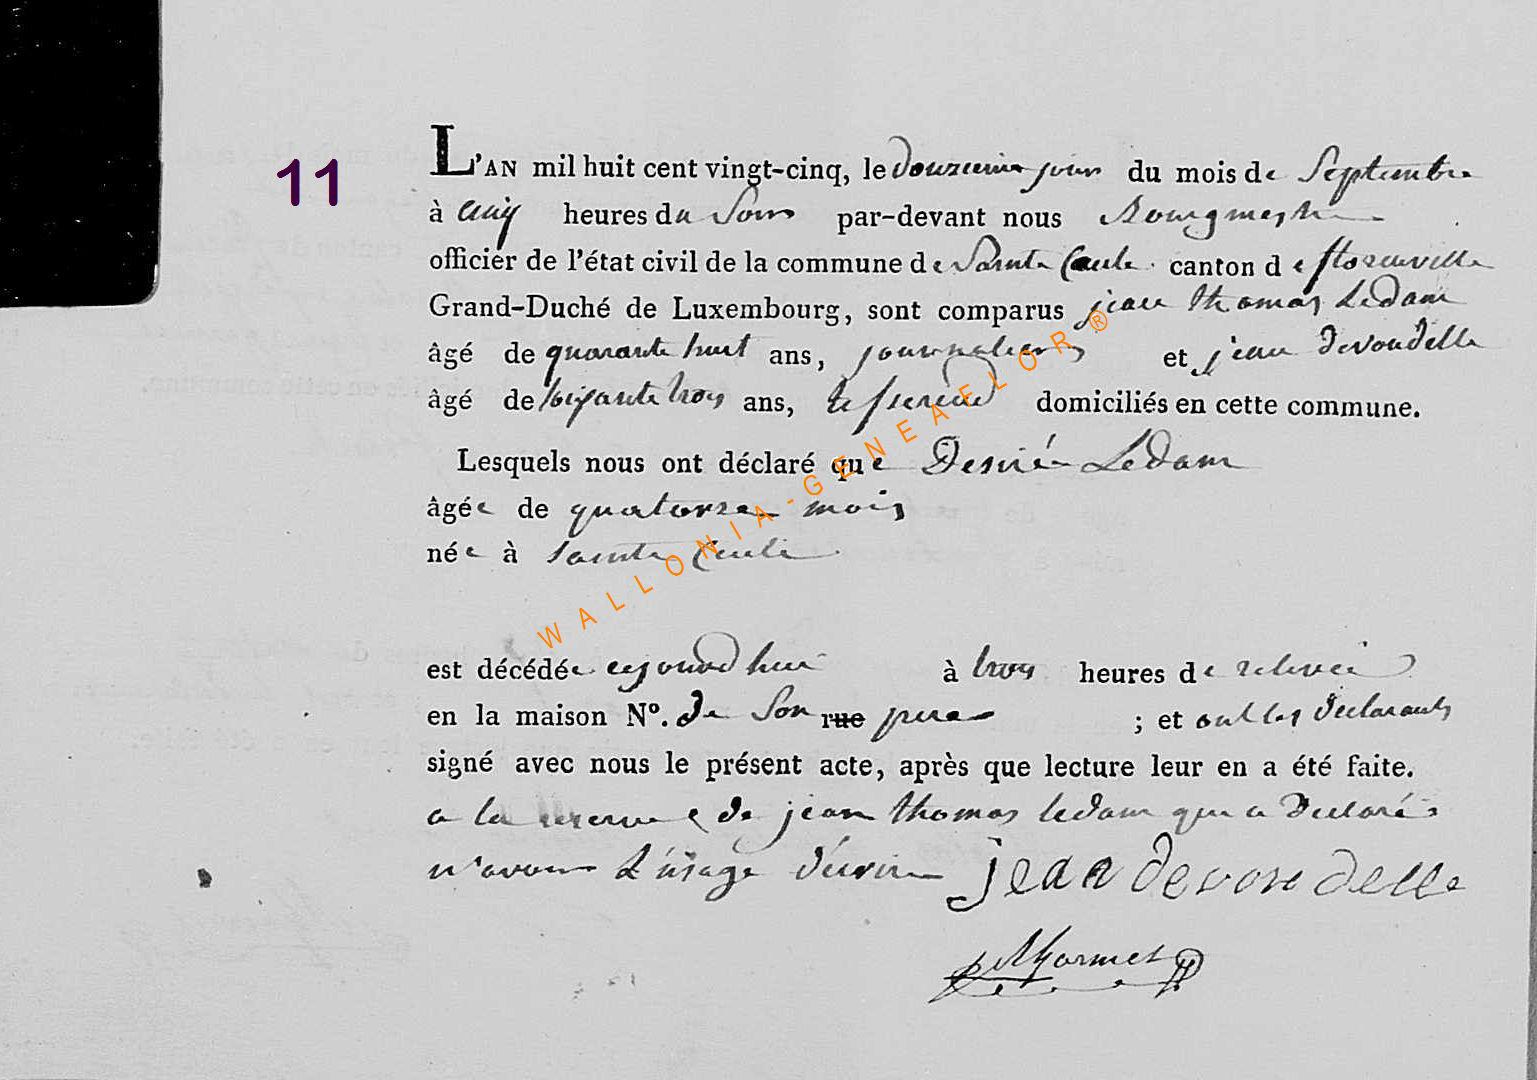 11
L'AN mil huit cent vingt-cinq, le douzieme jour du mois de Septembre
à cinq heures du Soir par-devant nous Bourgmestre
officier de l'état civil de la commune de Sainte Cecile canton de florenville
Grand-Duché de Luxembourg, sont comparus jean thomas Ledam
âgé de quarante huit ans, journalier et jean devondelle
âgé de soixante trois ans, domiciliés en cette commune.
Lesquels nous ont déclaré que Desirée Ledam
âgée de quatorze mois
née à Sainte Cecile
est décédée cejourdhui à trois heures de relevée
en la maison Nº. de Son rue pere ; et ont les declarants
signé avec nous le présent acte, après que lecture leur en a été faite.
a la reserve de jean thomas ledam qui a declaré
n'avoir l'usage d'ecrire jean devondelle
WALLONIA-GENEAFLOR®